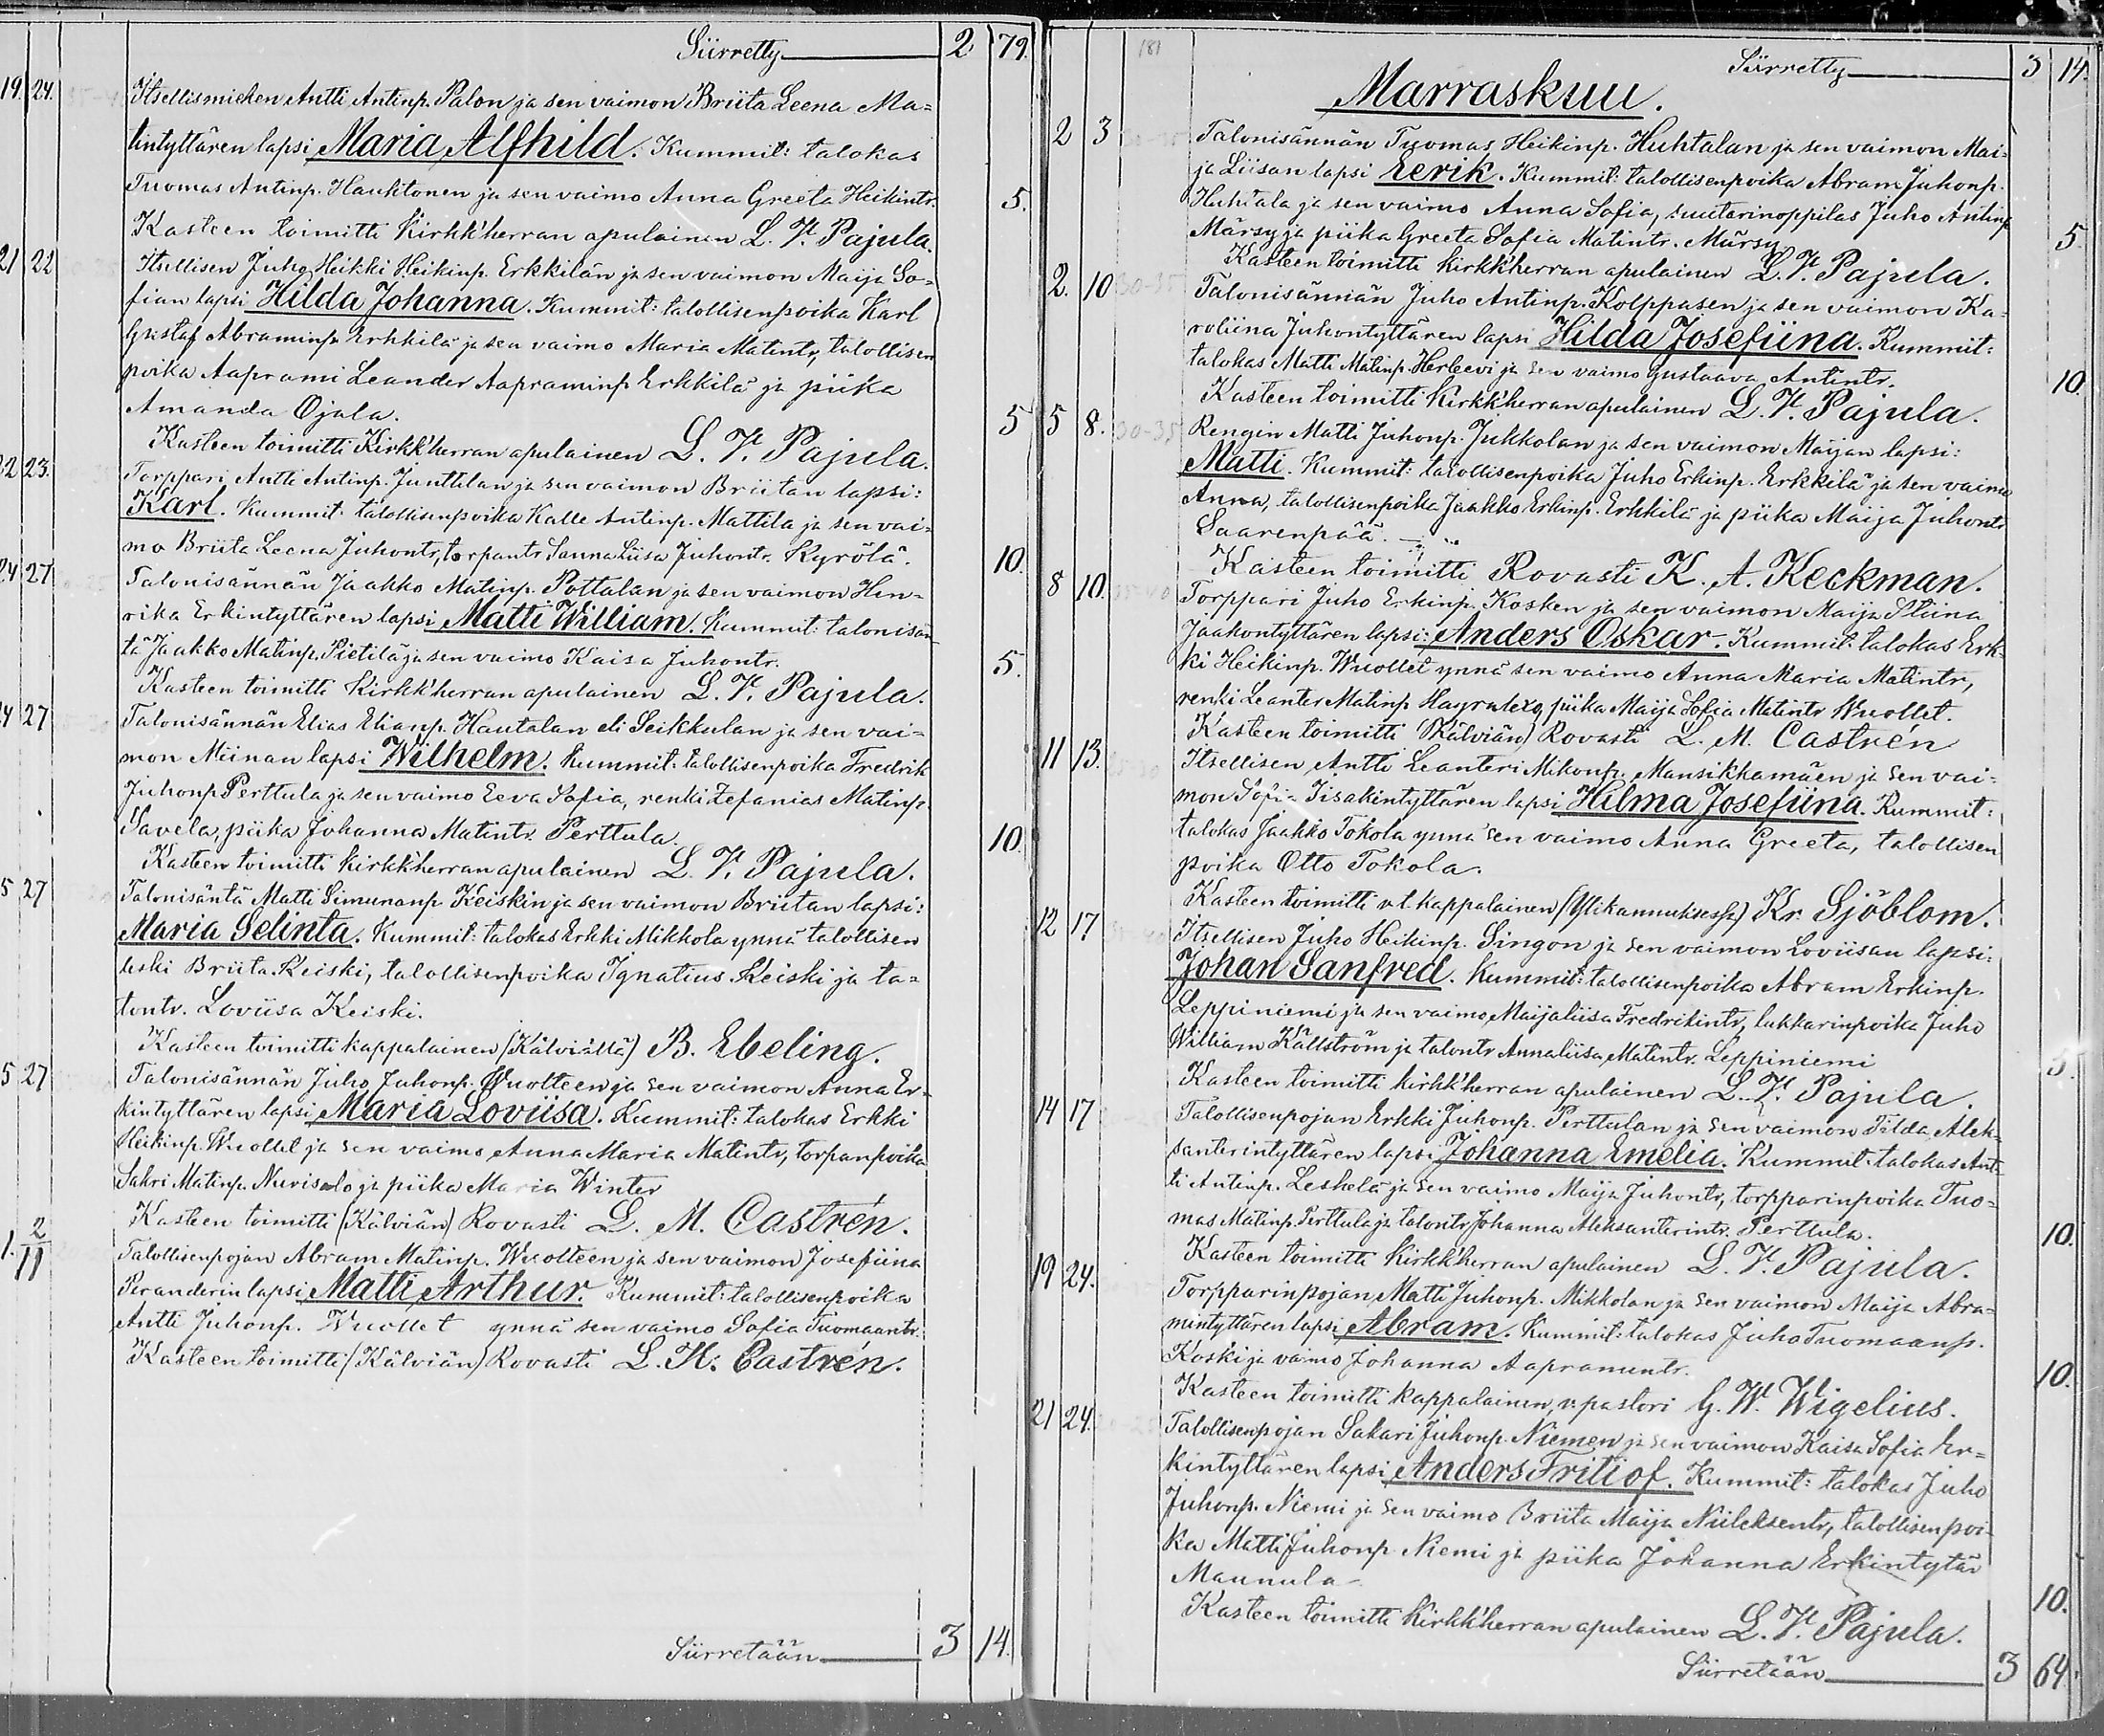 Siirretty 2 79.
19. 24. Itsellismiehen Antti Antinp. Palon ja sen vaimon Briita Leena Ma-
tintyttären lapsi Maria Alfhild. Kummit: talokas
Tuomas Antinp. Hauhtonen ja sen vaimo Anna Greeta Heikintr. 5.
Kasteen toimitti Kirkk'herran apulainen L. V. Pajula.
21 22 Itsellisen Juho Heikki Heikinp. Erkkilän ja sen vaimon Maija So-
fian lapsi Hilda Johanna. Kummit: talollisenpoika Karl
Gustaf Abraminp. Erkkilä ja sen vaimo Maria Matintr, talollisen
poika Aaprami Leander Aapraminp Erkkilä ja piika
Amanda Ojala. 5
Kasteen toimitti Kirkk'herran apulainen L. V. Pajula.
22 23. Torppari Antti Antinp. Junttilan ja sen vaimon Briitan lapsi:
Karl. Kummit. talollisenpoika Kalle Antinp. Mattila ja sen vai-
mo Briita Leena Juhontr, torpantr Sanna Liisa Juhontr. Kyrölä. 10.
24 27 Talonisännän Jaakko Matinp. Pottalan ja sen vaimon Hen-
rika Erkintyttären lapsi Matti William. Kummit: talonisän-
tä Jaakko Matinp. Pietilä ja sen vaimo Kaisa Juhontr. 5.
Kasteen toimitti Kirkk'herran apulainen L. V. Pajula.
24 27 Talonisännän Elias Elianp. Hautalan eli Seikkulan ja sen vai-
mon Miinan lapsi Wilhelm. Kummit: talollisenpoika Fredrik
Juhonp Perttula ja sen vaimo Eeva Sofia, renki Zefanias Matinp.
Savela, piika Johanna Matintr. Perttula. 10.
Kasteen toimitti kirkk'herran apulainen L. V. Pajula.
5 27 Talonisäntä Matti Simunanp Keiskin ja sen vaimon Briitan lapsi:
Maria Selinta. Kummit: talokas Erkki Mikkola ynnä talollisen
leski Briita Keiski, talollisenpoika Ignatius Keiski ja ta-
lontr. Loviisa Keiski.
Kasteen toimitti kappalainen (Kälviällä) B. Ebeling.
5 27 Talonisännän Juho Juhonp. Wuolteen ja sen vaimon Anna Er-
kintyttären lapsi Maria Loviisa. Kummit: talokas Erkki
Heikinp. Wuollet ja sen vaimo Anna Maria Matintr, torpanpoika
Sakri Matinp. Nurisalo ja piika Maria Winter
Kasteen toimitti (Kälviän) Rovasti L. M. Castrén.
1. 2/11 Talollisenpojan Abram Matinp. Wuolteen ja sen vaimon Josefiina
Peranderin lapsi Matti Arthur. Kummit: talollisenpoika
Antti Juhonp. Wuollet ynnä sen vaimo Sofia Tuomaantr.
Kasteen toimitti (Kälviän) Rovasti L. M. Castrén.
Siirretään 3 14.
181 Siirretty 3 14.
Marraskuu.
2 3 Talonisännän Tuomas Heikinp. Huhtalan ja sen vaimon Mai-
ja Liisan lapsi Eerik. Kummit: talollisenpoika Abram Juhonp.
Huhtala ja sen vaimo Anna Sofia, suutarinoppilas Juho Antinp
Märsy ja piika Greeta Sofia Matintr. Märsy. 5
Kasteen toimitti kirkk'herran apulainen L. V. Pajula.
2. 10 30-35 Talonisännän Juho Antinp. Kolppasen ja sen vaimon Ka-
roliina Juhontyttären lapsi Hilda Josefiina. Kummit:
talokas Matti Matinp. Herleevi ja sen vaimo Gustaava Antintr. 10.
Kasteen toimitti Kirkk'herran apulainen L. V. Pajula.
5 8. 30-35 Rengin Matti Juhonp. Jukkolan ja sen vaimon Maijan lapsi:
Matti. Kummit: talollisenpoika Juho Erkinp. Erkkilä ja sen vaimo
Anna, talollisenpoika Jaakko Erkinp. Erkkilä ja piika Maija Juhontr
Saarenpää.
Kasteen toimitti Rovasti K. A. Keckman.
8 10. 35-40 Torppari Juho Erkinp. Kosken ja sen vaimon Maija Stiina
Jaakontyttären lapsi: Anders Oskar. Kummit: talokas Erk-
ki Heikinp. Wuollet ynnä sen vaimo Anna Maria Matintr,
renki Leanter Matinp piika Maija Sofia Matintr Wuollet.
Kasteen toimitti (Kälviän) Rovasti L. M. Castrén
11 13. 25-30 Itsellisen Antti Leanteri Mikonp. Mansikkamäen ja sen vai-
mon Sofia Iisakintyttären lapsi Hilma Josefiina. Kummit:
talokas Jaakko Tokola ynnä sen vaimo Anna Greeta, talollisen
poika Otto Tokola.
Kasteen toimitti v.t. kappalainen (Ylikannuksessa) Kr. Sjöblom.
12 17 Itsellisen Juho Heikinp. Singon ja sen vaimon Loviisan lapsi:
Johan Sanfred. Kummit: talollisenpoika Abram Erkinp.
Leppiniemi ja sen vaimo Maijaliisa Fredrikintr, lukkarinpoika Juho
William Källström ja talontr Annaliisa Matintr. Leppiniemi 5.
Kasteen toimitti kirkk'herran apulainen L. V. Pajula.
14 17 Talollisenpojan Erkki Juhonp. Perttulan ja sen vaimon Tilda Alek-
santerintyttären lapsi Johanna Emelia. Kummit: talokas Ant-
ti Antinp. Leskelä ja sen vaimo Maija Juhontr, torpparinpoika Tuo-
mas Matinp. Perttula ja talontr Johanna Aleksanterintr. Perttula. 10.
Kasteen toimitti Kirkk'herran apulainen L. V. Pajula.
19 24. Torpparinpojan Matti Juhonp. Mikkolan ja sen vaimon Maija Abra-
mintyttären lapsi Abram. Kummit: talokas Juho Tuomaanp.
Koski ja vaimo Johanna Aapramintr. 10.
Kasteen toimitti kappalainen, v. pastori G. W. Wigelius.
21 24. Talollisenpojan Sakari Juhonp. Niemen ja sen vaimon Kaisa Sofia Er-
kintyttären lapsi Anders Fritiof. Kummit: talokas Juho
Juhonp. Niemi ja sen vaimo Briita Maija Niileksentr, talollisenpoi-
ka Matti Juhonp Niemi ja piika Johanna Erkintytär
Maunula. 10.
Kasteen toimitti Kirkk'herran apulainen L. V. Pajula.
Siirretään 3 64.